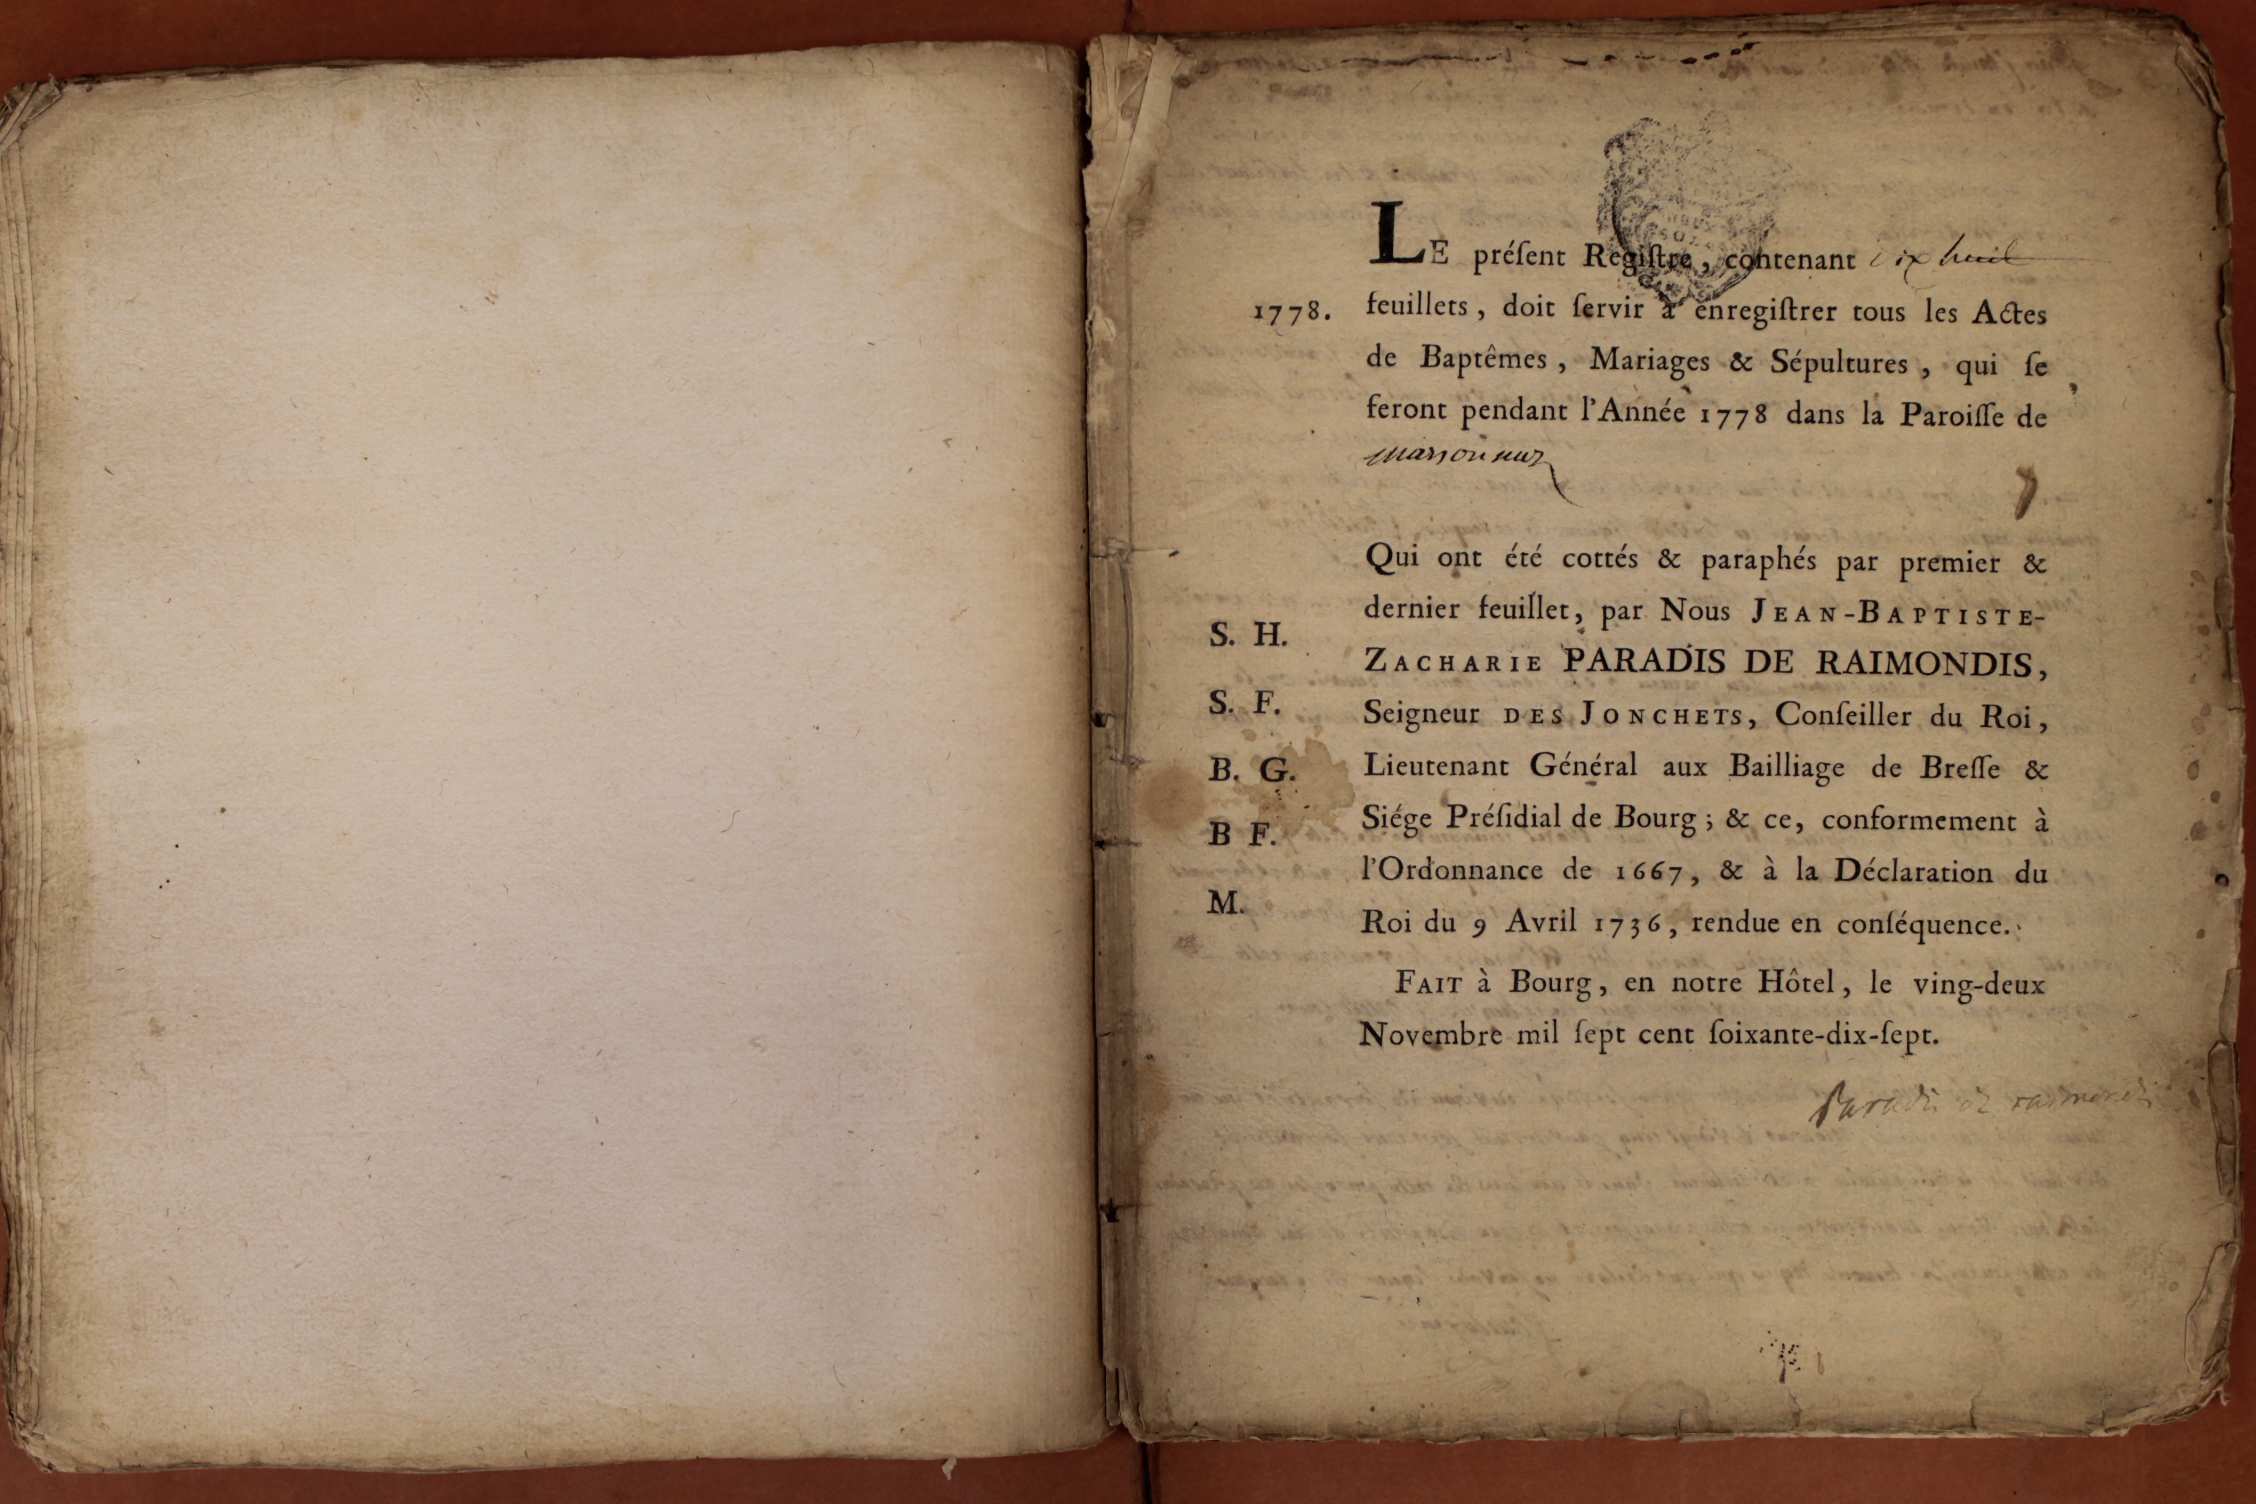 LE préſent Regiſtre, contenant dix huit
1778.
feuillets, doit ſervir à enregiſtrer tous les Actes
de Baptêmes, Mariages & Sépultures, qui ſe
feront pendant l'Année 1778 dans la Paroiſſe de
marsonnas
Qui ont été cottés & paraphés par premier &
dernier feuillet, par Nous JEAN-BAPTISTE-
S. H.
ZACHARIE PARADIS DE RAIMONDIS,
S. F.
Seigneur DES JONCHETS, Conſeiller du Roi,
B. G.
Lieutenant Général aux Bailliage de Breſſe &
B F.
Siége Préſidial de Bourg; & ce, conformement à
l'Ordonnance de 1667, & à la Déclaration du
M.
Roi du 9 Avril 1736, rendue en conſéquence.
FAIT à Bourg, en notre Hôtel, le ving-deux
Novembre mil ſept cent ſoixante-dix-ſept.
Paradis de raimondis